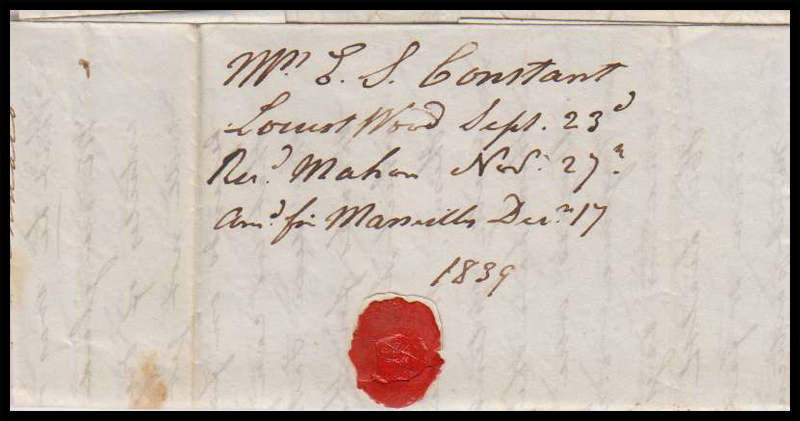 Mrs E. S. Constant
Locust Wood Sept. 23d
Recd. Mahon Nov. 27th
Ansd fm Marseilles Decr 17
1839